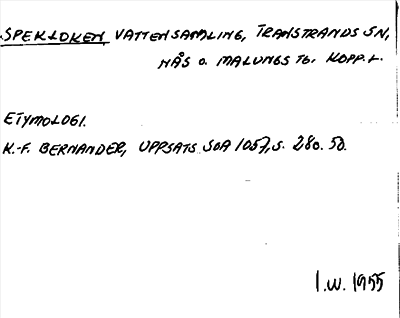 SPEKLOKEN, VATTENSAMLING, TRANSTRANDS SN,
NÅS o. MALUNGS TG. KOPP. L.
ETYMOLOGI.
K.-F. BERNANDER, UPPSATS SOA 1057, S. 280. 50.
I.W. 1955